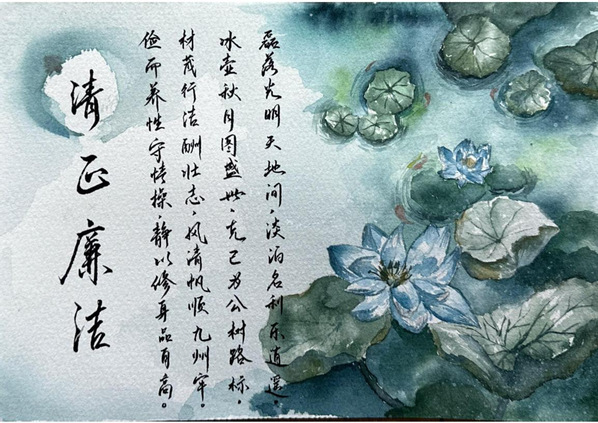 磊落光明天地间，淡泊名利乐逍遥。
冰壶秋月图盛世，克己为公树路标。
材茂行洁酬壮志，风清帆顺九州牢。
俭而养性守情操，静以修身品自高。
清正廉洁